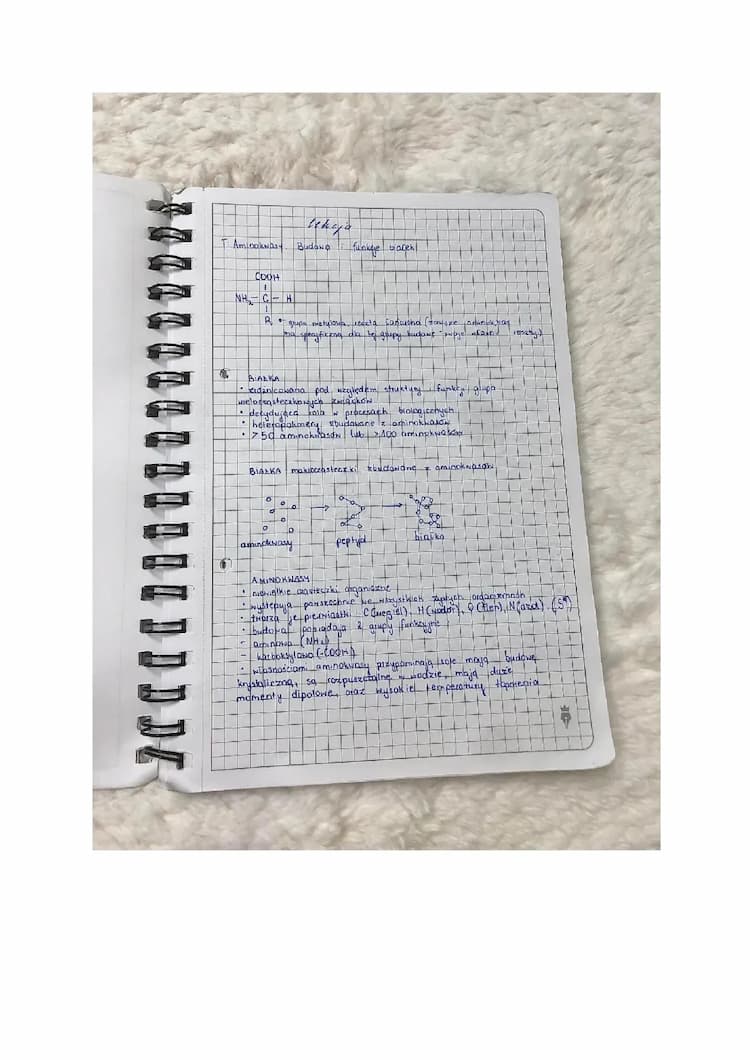 Lekcja
T. Aminokwasy. Budowa i funkcje białek
COOH
NH₂ – C – H
R • grupa metylowa, reszta
ma specyficzną dla tej grupy budowę
BIAŁKA
• zróżnicowana pod względem struktury i funkcji grupa
wielocząsteczkowych związków
• decydująca rola w procesach biologicznych
• heteropolimery zbudowane z aminokwasów
• >50 aminokwasów lub >100 aminokwasów
BIAŁKA makrocząsteczki zbudowane z aminokwasów
aminokwasy peptyd białko
AMINOKWASY
• niewielkie cząsteczki organiczne
• występują powszechnie we wszystkich żywych organizmach
• tworzą je pierwiastki C(węgiel), H(wodór), O(tlen), N(azot), (S)
• budowa: posiadają 2 grupy funkcyjne
- aminowa (NH₂)
- karboksylowa (-COOH)
• własnościami aminokwasy przypominają sole mają budowę
krystaliczną, są rozpuszczalne w wodzie, mają duże
momenty dipolowe, oraz wysokie temperatury topnienia